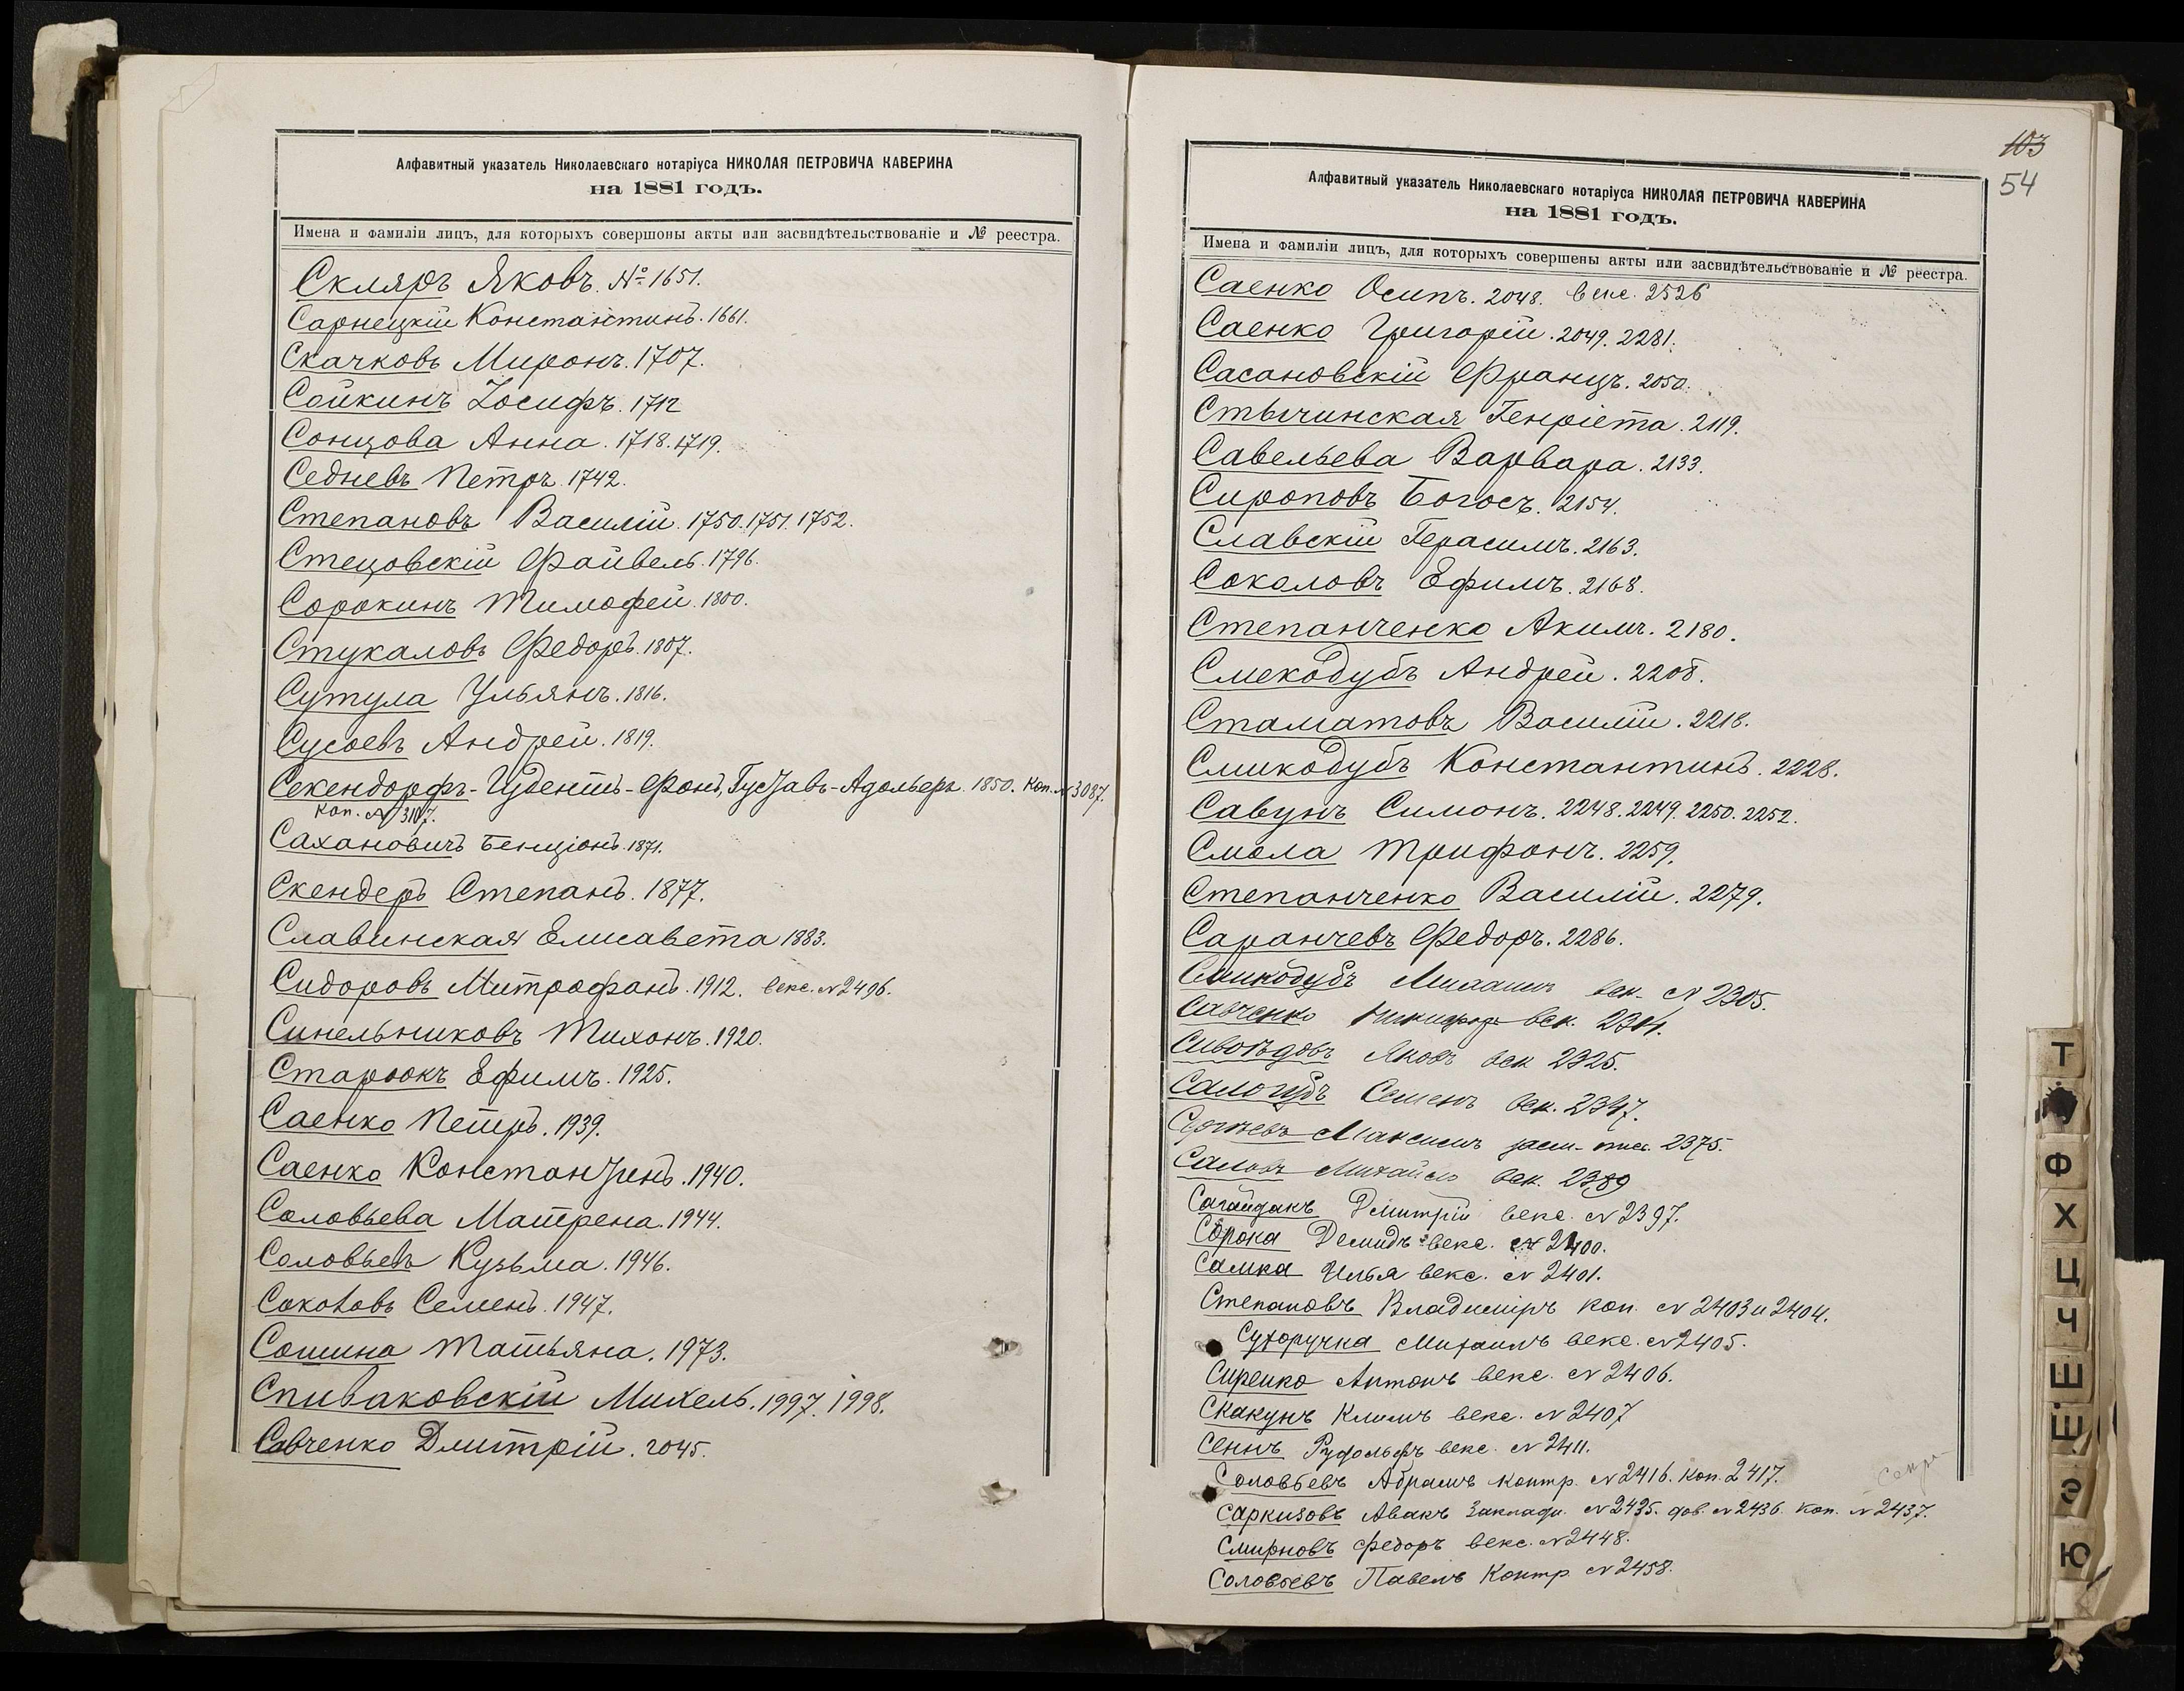 Алфавитный указатель Николаевскаго нотаріуса НИКОЛАЯ ПЕТРОВИЧА КАВЕРИНА
на 1881 годъ.
Имена и фамиліи лицъ, для которыхъ совершоны акты или засвидѣтельствованіе и № реестра.
Скляръ Яковъ. № 1651.
Сарнецкій Константинъ. 1661.
Скачковъ Миронъ. 1707.
Сойкинъ Іосифъ. 1712
Сонцова Анна. 1718. 1719.
Седневъ Петръ. 1742.
Степановъ Василій. 1750. 1751. 1752.
Стецовскій Файвель. 1796.
Сорокинъ Тимофей. 1800.
Стукаловъ Федоръ. 1807.
Сутула Ульянъ. 1816.
Сусоевъ Андрей. 1819.
Секендорфъ-Гудентъ-Фонъ, Густавъ-Адольфъ. 1850. Коп. № 3087.
Коп. № 3107.
Сахановичъ Бенціонъ. 1871.
Скендеръ Степанъ. 1877.
Славинская Елисавета 1883.
Сидоровъ Митрофанъ. 1912. векс. № 2496.
Синельниковъ Тихонъ. 1920.
Староокъ Ефимъ. 1925.
Саенко Петръ. 1939.
Саенко Константинъ. 1940.
Соловьева Матрена. 1944.
Соловьевъ Кузьма. 1946.
Соколовъ Семенъ. 1947.
Сошина Татьяна. 1973.
Спиваковскій Михель. 1997. 1998.
Савченко Дмитрій. 2045.
103
54
Алфавитный указатель Николаевскаго нотаріуса НИКОЛАЯ ПЕТРОВИЧА КАВЕРИНА
на 1881 годъ.
Имена и фамиліи лицъ, для которыхъ совершены акты или засвидѣтельствованіе и № реестра.
Саенко Осипъ. 2048. векс. 2526
Саенко Григорій. 2049. 2281.
Сасановскій Францъ. 2050.
Стычинская Генріета. 2119.
Савельева Варвара. 2133.
Сироповъ Богосъ. 2154.
Славскій Герасимъ. 2163.
Соколовъ Ефимъ. 2168.
Степанченко Акимъ. 2180.
Смекодубъ Андрей. 2208.
Стаматовъ Василій. 2218.
Смикодубъ Константинъ. 2228.
Савунъ Симонъ. 2248. 2249. 2250. 2252.
Смола Трифонъ. 2259.
Степанченко Василій. 2279.
Саранчевъ Федоръ. 2286.
Смикодубъ Михаилъ век. № 2305.
Савченко Никифоръ век.
Яковъ век 2325.
Сологубъ Семенъ век. 2347.
Максимъ 2375.
Михайло век. 2389
Сагайдакъ Дмитрій векс. № 2397.
Сорока Демидъ векс. № 2400.
Самка Илья векс. № 2401.
Степановъ Владиміръ коп. № 2403 и 2404.
Сухоручка Михаилъ векс. № 2405.
Сиренко Антонъ векс. № 2406.
Скакунъ Климъ векс. № 2407
Сеннъ Рудольфъ векс. № 2411.
Соловьевъ Абрамъ контр. № 2416. коп. 2417.
Саркизовъ Авакъ Закладн. № 2435. дов. № 2436. коп. № 2437.
Смирновъ Федоръ векс. № 2448.
Соловьевъ Павелъ Контр. № 2458.
Т
У
Ф
Х
Ц
Ч
Ш
Э
Ю